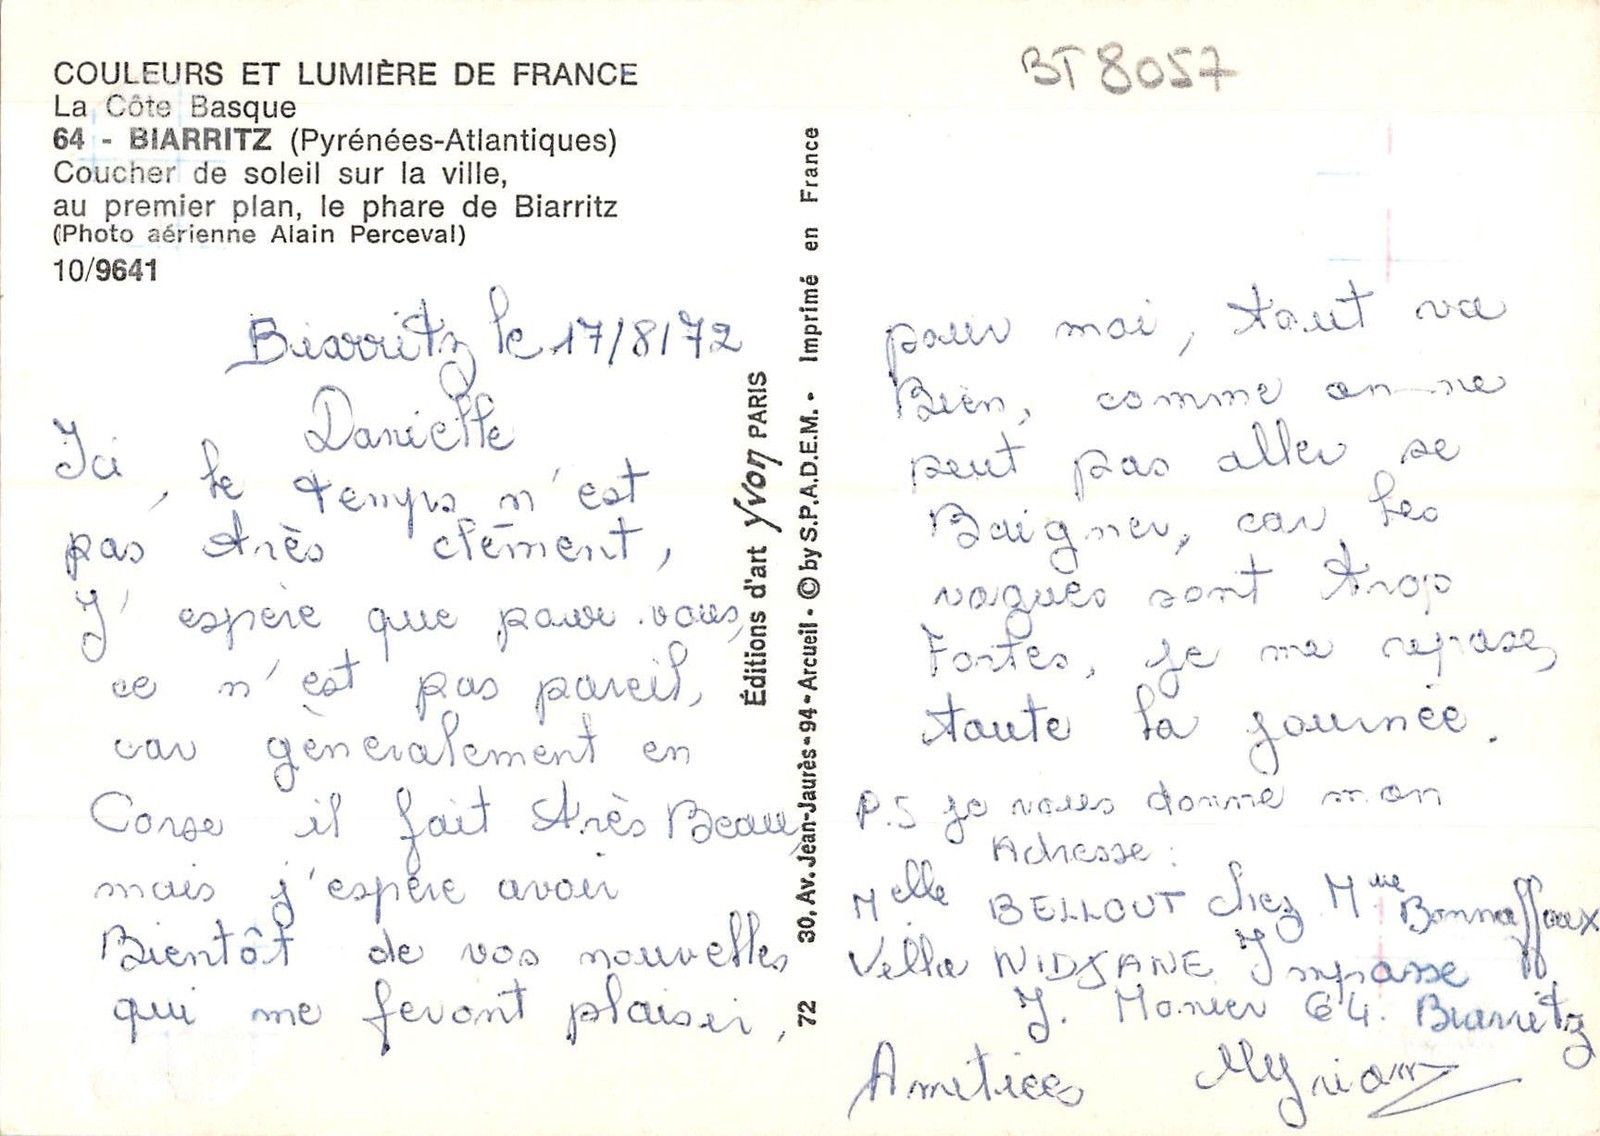 COULEURS ET LUMIÈRE DE FRANCE
La Côte Basque
64 - BIARRITZ (Pyrénées-Atlantiques)
Coucher de soleil sur la ville,
au premier plan, le phare de Biarritz
(Photo aérienne Alain Perceval)
10/9641
BT 8057
Biarritz le 17/8/72
Danielle
Ici, le temps n'est
pas très clément,
J'espère que pour vous,
ce n'est pas pareil,
car gèneralement en
Corse il fait très Beau,
mais j'espère avoir
Bientôt de vos nouvelles
qui me feront plaisir,
Éditions d'art Yvon PARIS
72 30, Av. Jean-Jaurès - 94 - Arcueil - © by S.P.A.D.E.M. - Imprimé en France
pour moi, tout va
Bien, comme on ne
peut pas aller se
Baigner, car les
vagues sont trop
Fortes, je me repose,
toute la journée.
P.S je vous donne mon
Adresse :
Melle BELLOUT chez Mme Bonnaffoux
Villa NIDJANE Impasse
J. Monier 64. Biarritz
Amitiees Myriam